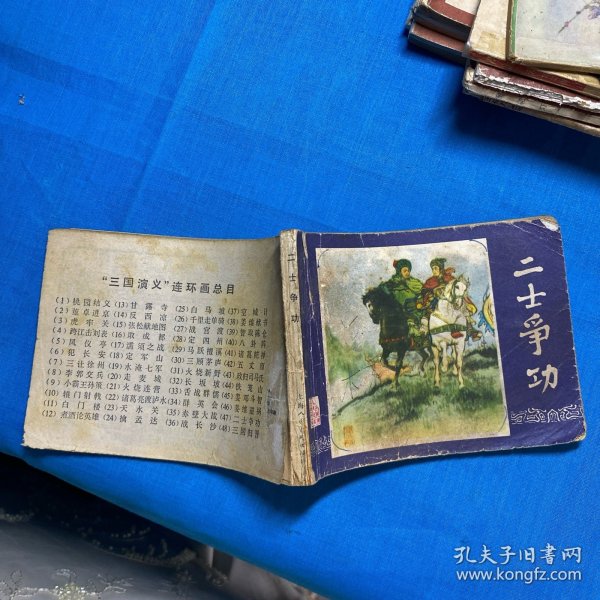 "三国演义"连环画总目
(1) 桃园结义 (13) 甘露寺 (25) 白马坡 (37) 空城计
(2) 董卓进京 (14) 反西凉 (26) 千里走单骑 (38) 姜维献书
(3) 虎牢关 (15) 张松献地图 (27) 战官渡
(4) 跨江击刘表 (16) 取成都 (28) 定四州 (40) 八卦阵
(5) 凤仪亭 (17) 濡须之战 (29) 马跃檀溪
(6) 犯长安 (18) 定军山 (30) 三顾茅庐 (42) 五丈原
(7) 三让徐州 (19) 水淹七军 (31) 火烧新野
(8) 李郭交兵 (20) 走麦城 (32) 长坂坡 (44) 铁笼山
(9) 小霸王孙策 (21) 火烧连营 (33) 舌战群儒
(10) 辕门射戟 (22) 诸葛亮渡泸水 (34) 群英会
(11) 白门楼 (23) 天水关 (35) 赤壁大战 (47) 二士争功
(12) 煮酒论英雄 (24) 擒孟达 (36) 战长沙 (48) 三国归晋
二士争功
二士争功
孔夫子旧书网
www.kongfz.com